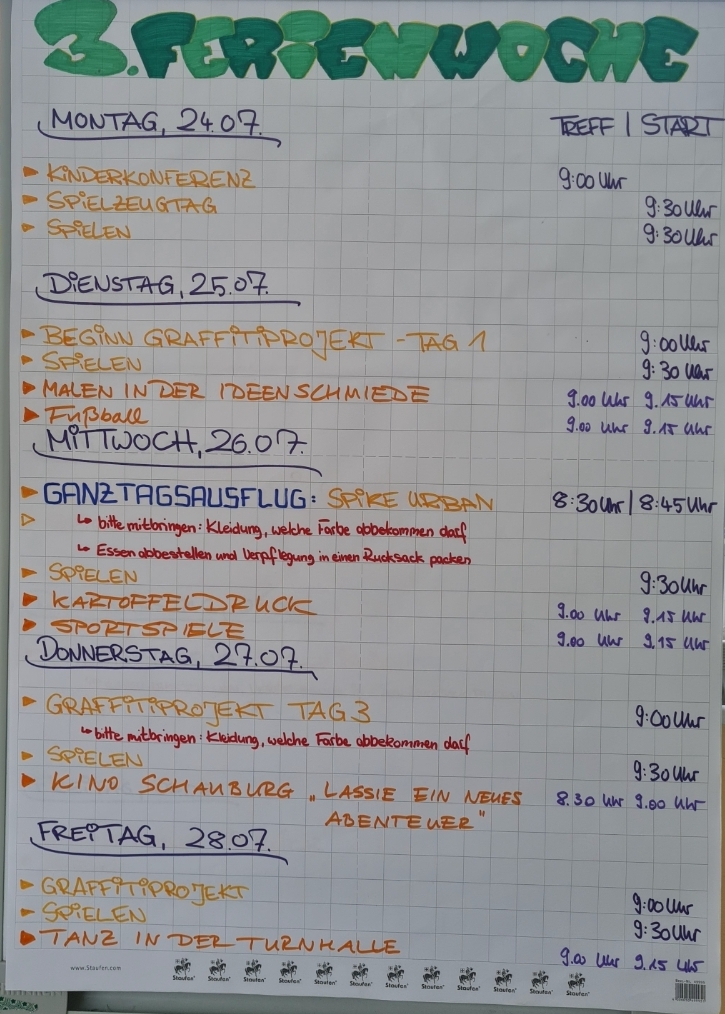 3. FERIENWOCHE
MONTAG, 24.07. TREFF | START
KINDERKONFERENZ 9:00 Uhr
SPIELZEUGTAG 9:30 Uhr
SPIELEN 9:30 Uhr
DIENSTAG, 25.07.
BEGINN GRAFFITIPROJEKT - TAG 1 9:00 Uhr
SPIELEN 9:30 Uhr
MALEN IN DER IDEENSCHMIEDE 9.00 Uhr 9.15 Uhr
Fußball 9.00 Uhr 9.15 Uhr
MITTWOCH, 26.07.
GANZTAGSAUSFLUG: SPIKE URBAN 8:30 Uhr | 8:45 Uhr
↳ bitte mitbringen: Kleidung, welche Farbe abbekommen darf
↳ Essen abbestellen und Verpflegung in einen Rucksack packen
SPIELEN 9:30 Uhr
KARTOFFELDRUCK 9.00 Uhr 9.15 Uhr
SPORTSPIELE 9.00 Uhr 9.15 Uhr
DONNERSTAG, 27.07.
GRAFFITIPROJEKT TAG 3 9:00 Uhr
↳ bitte mitbringen: Kleidung, welche Farbe abbekommen darf
SPIELEN 9:30 Uhr
KINO SCHAUBURG „LASSIE EIN NEUES 8.30 Uhr 9.00 Uhr
ABENTEUER"
FREITAG, 28.07.
GRAFFITIPROJEKT 9:00 Uhr
SPIELEN 9:30 Uhr
TANZ IN DER TURNHALLE 9.00 Uhr 9.15 Uhr
www.Staufen.com Staufen Staufen Staufen Staufen Staufen Staufen Staufen Staufen Staufen Staufen Staufen Staufen